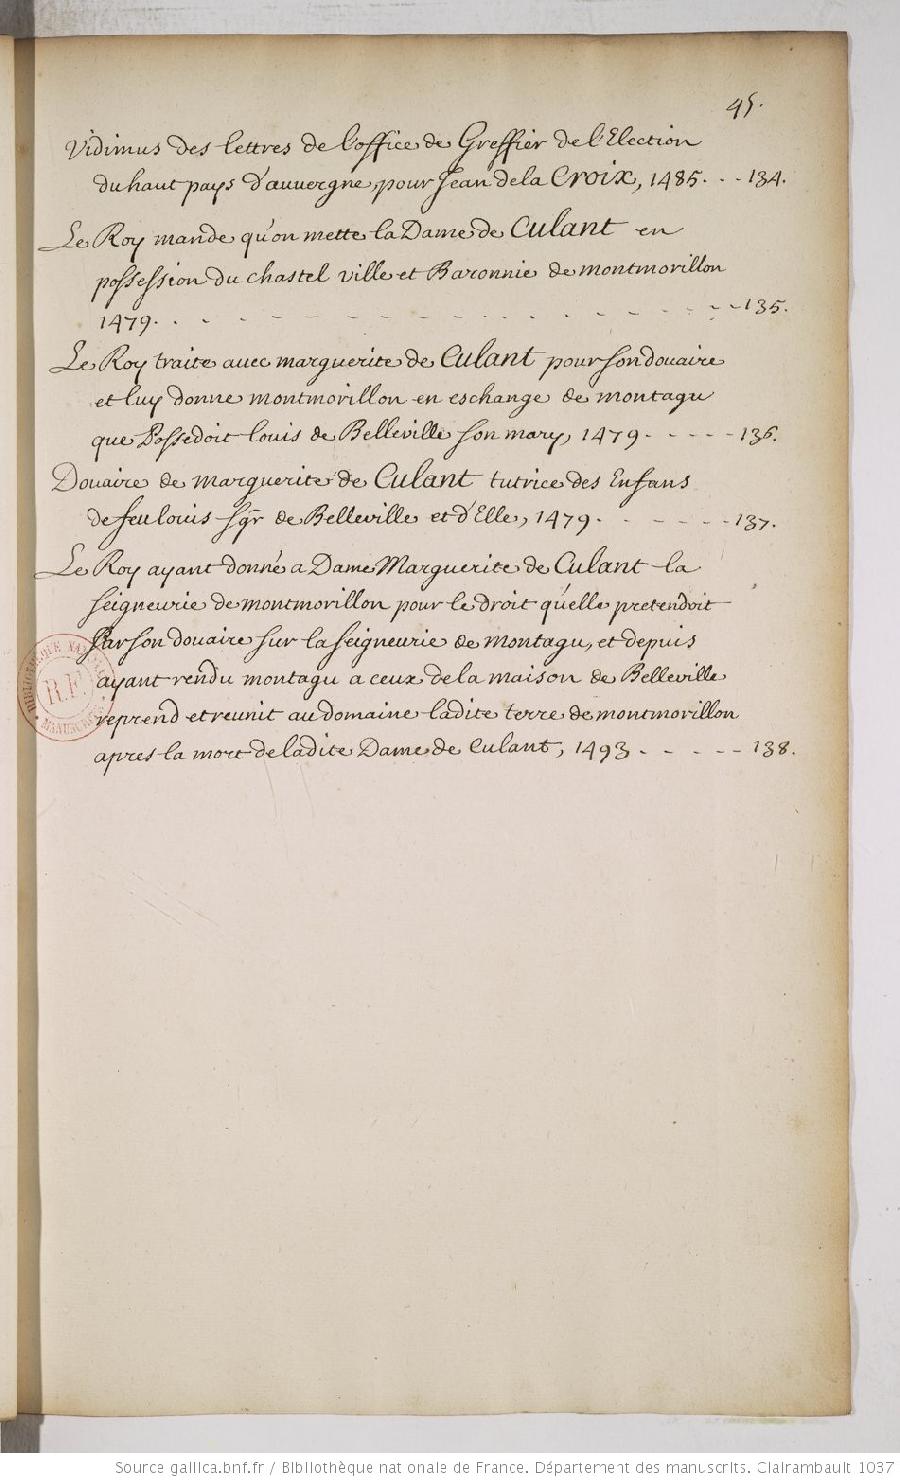 45.
Vidimus des lettres de l'office de Greffier de l'Election
du haut pays d'auvergne, pour Jean de la Croix, 1485. - - 134.
Le Roy mande qu'on mette la Dame de Culant en
possession du chastel ville et Baronnie de montmorillon
1479. - - - - - - - - - - - - - - 135.
Le Roy traite avec marguerite de Culant pour son douaire
et luy donne montmorillon en eschange de montagu
que Possedoit louis de Belleville son mary, 1479 - - - - - 136.
Douaire de marguerite de Culant tutrice des Enfans
de feu louis sgr de Belleville et d'Elle, 1479. - - - - - 137.
Le Roy ayant donné a Dame Marguerite de Culant la
seigneurie de montmorillon pour le droit qu'elle pretendoit
Par son douaire sur la seigneurie de montagu, et depuis
ayant rendu montagu a ceux de la maison de Belleville
reprend et reunit au domaine ladite terre de montmorillon
apres la mort de ladite Dame de Culant, 1493 - - - - - 138.
BIBLIOTHEQUE NATIONALE
R.F.
MANUSCRITS
Source gallica.bnf.fr / Bibliothèque nationale de France. Département des manuscrits. Clairambault 1037